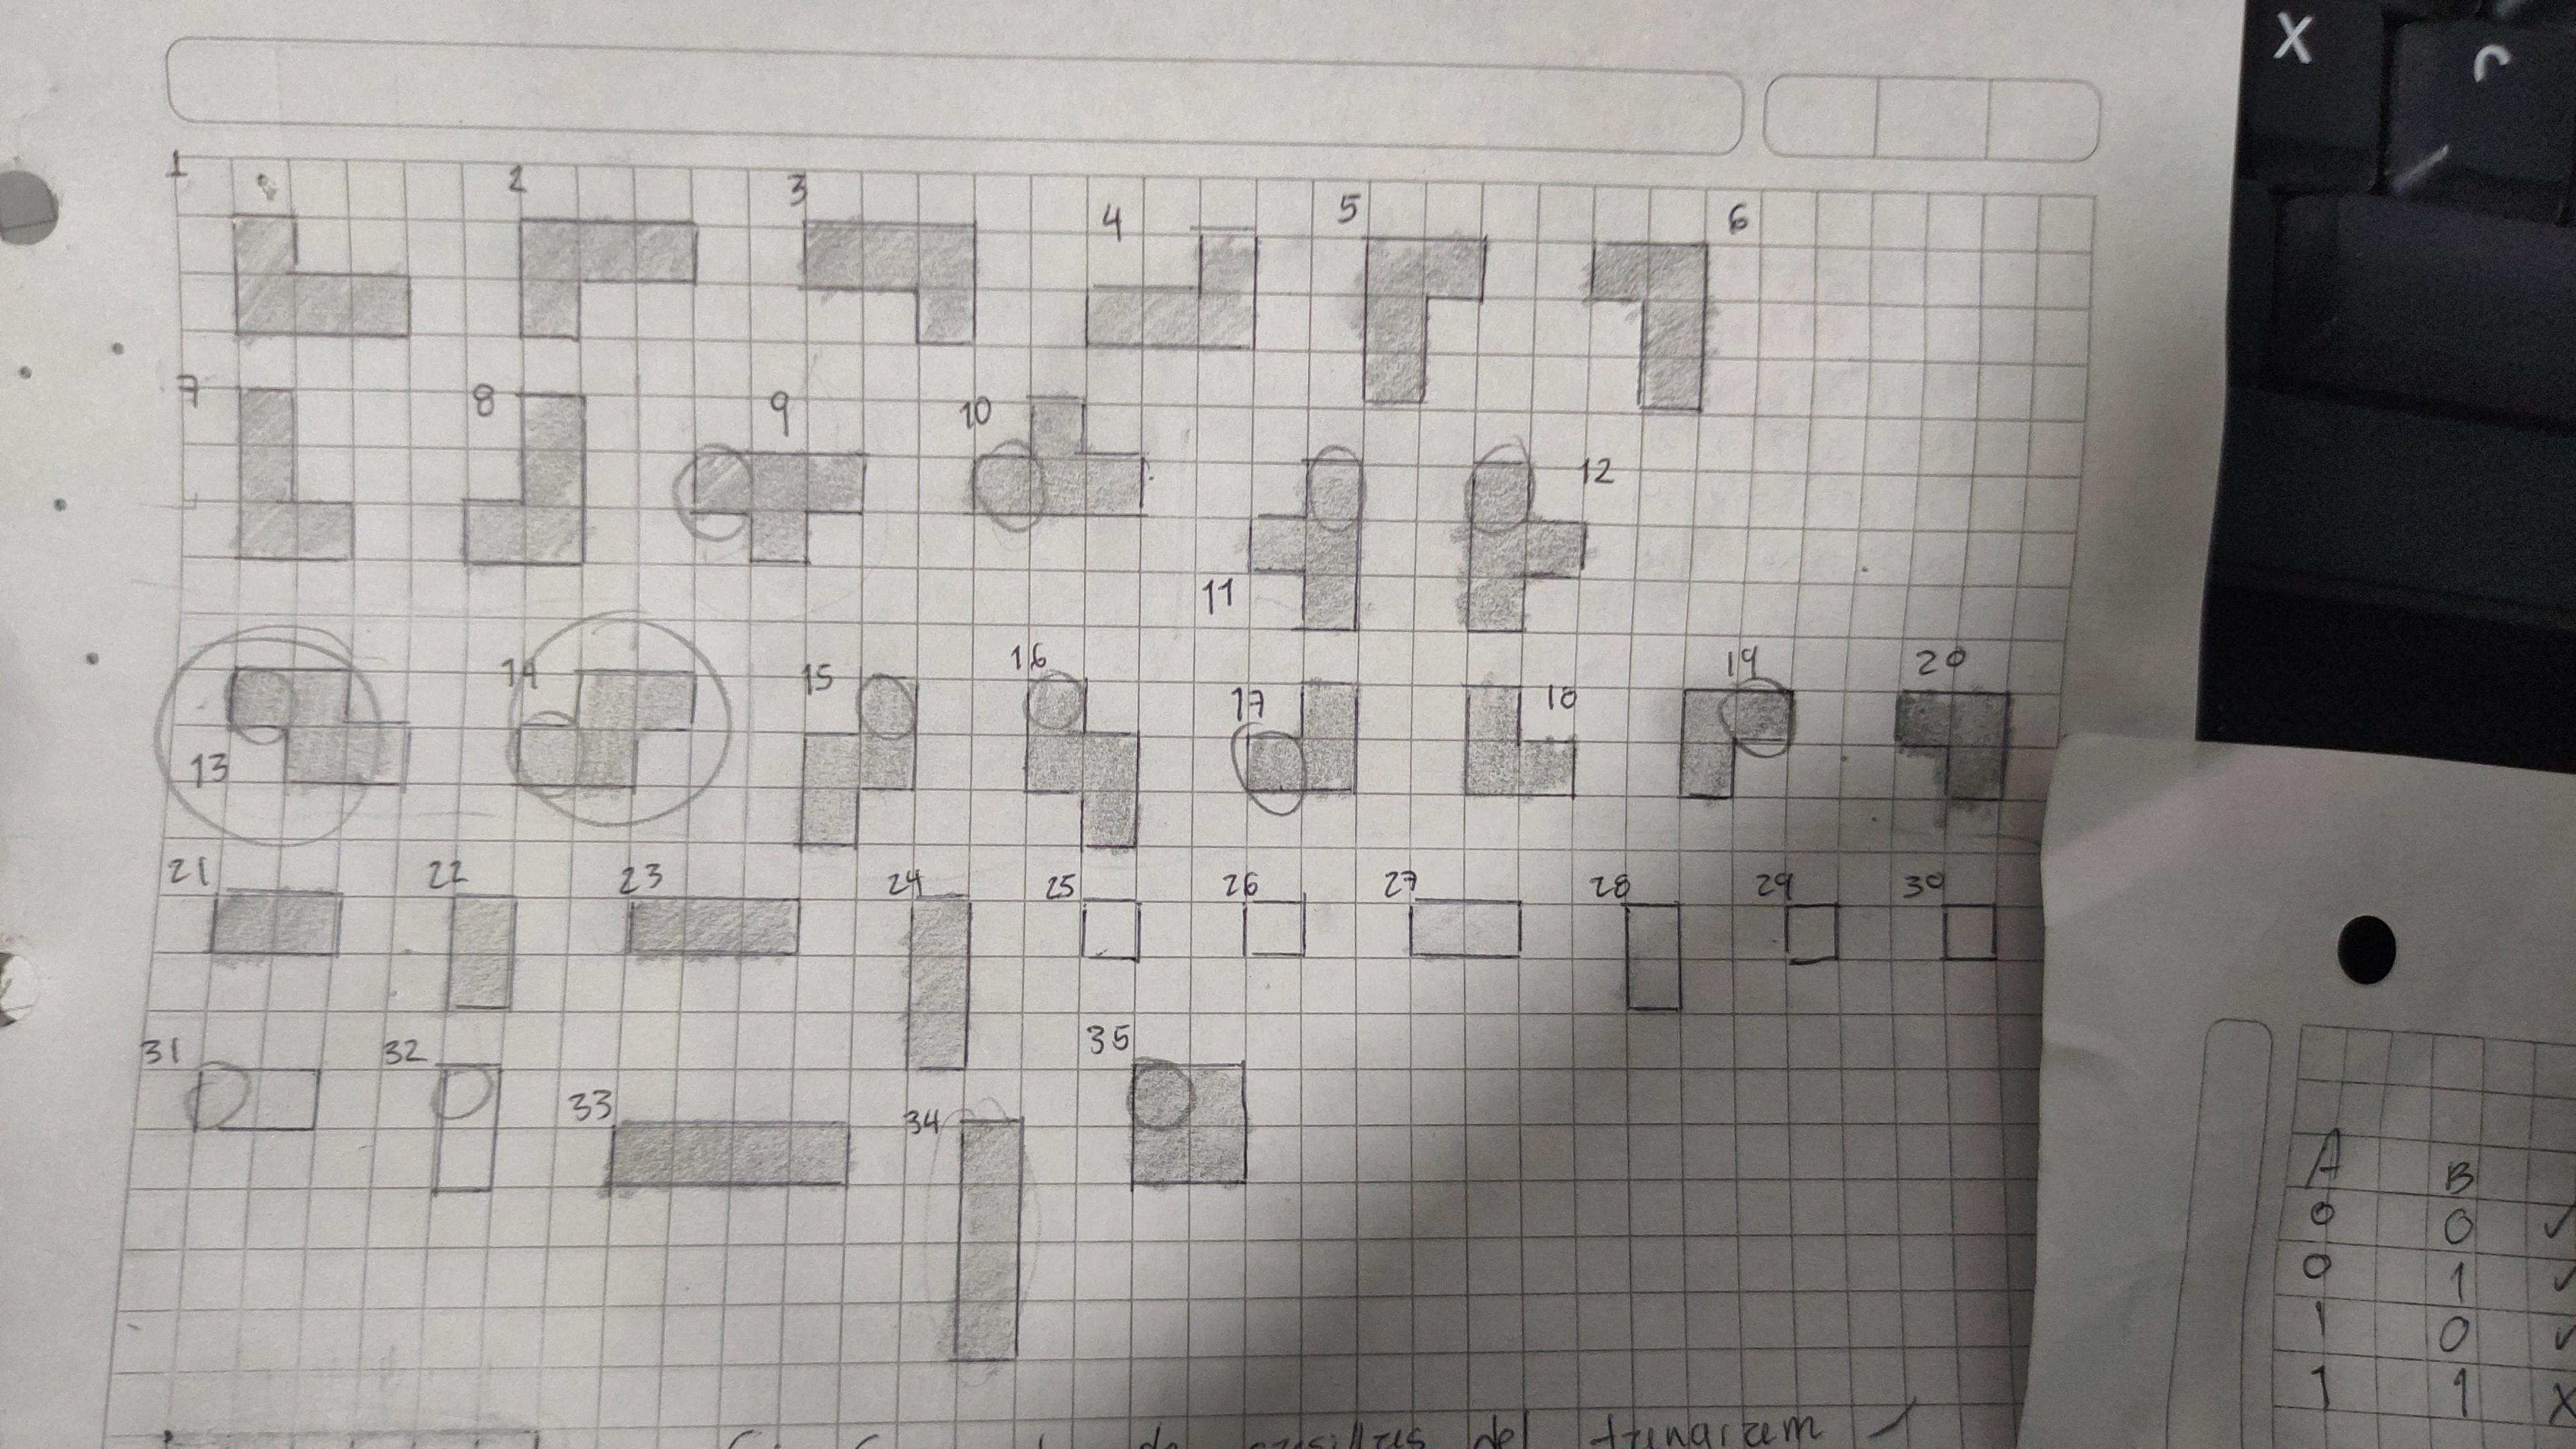 1 2 3 4 5 6
7 8 9 10 11 12
13 14 15 16 17 18 19 20
21 22 23 24 25 26 27 28 29 30
31 32 33 34 35
casillas del tangram
A B
0 0
0 1
1 0
1 1 X
X
C